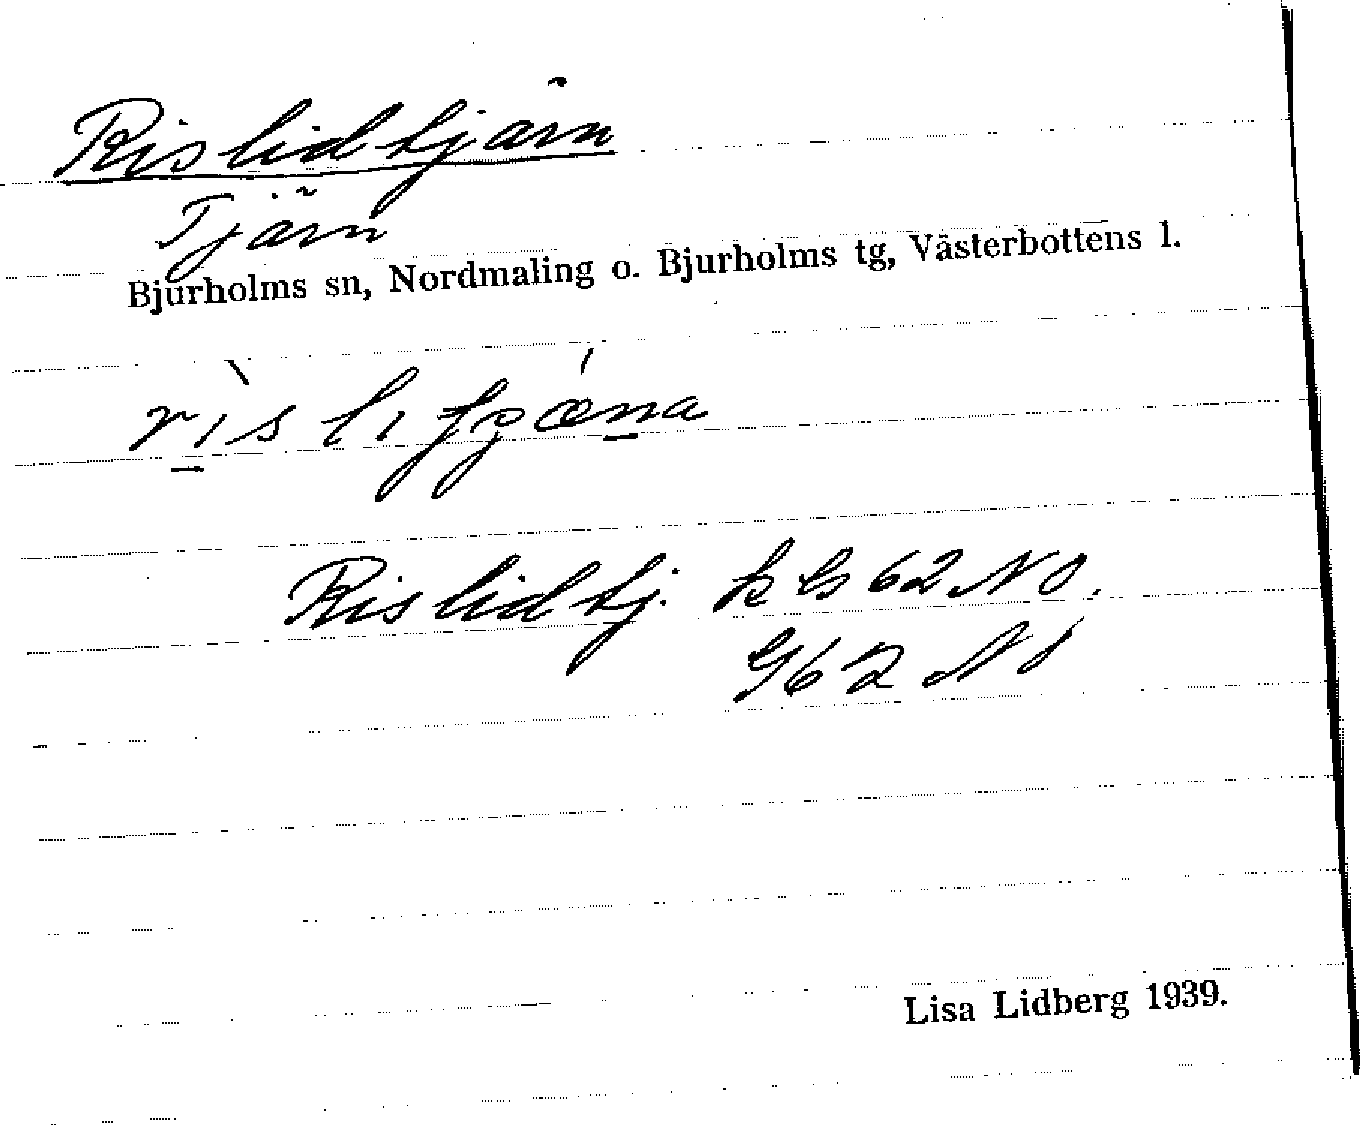 Rislidtjärn
Tjärn
Bjurholms sn, Nordmaling o. Bjurholms tg, Västerbottens l.
Rislidtj. k bl 62 NO.
G62 NO
Lisa Lidberg 1939.